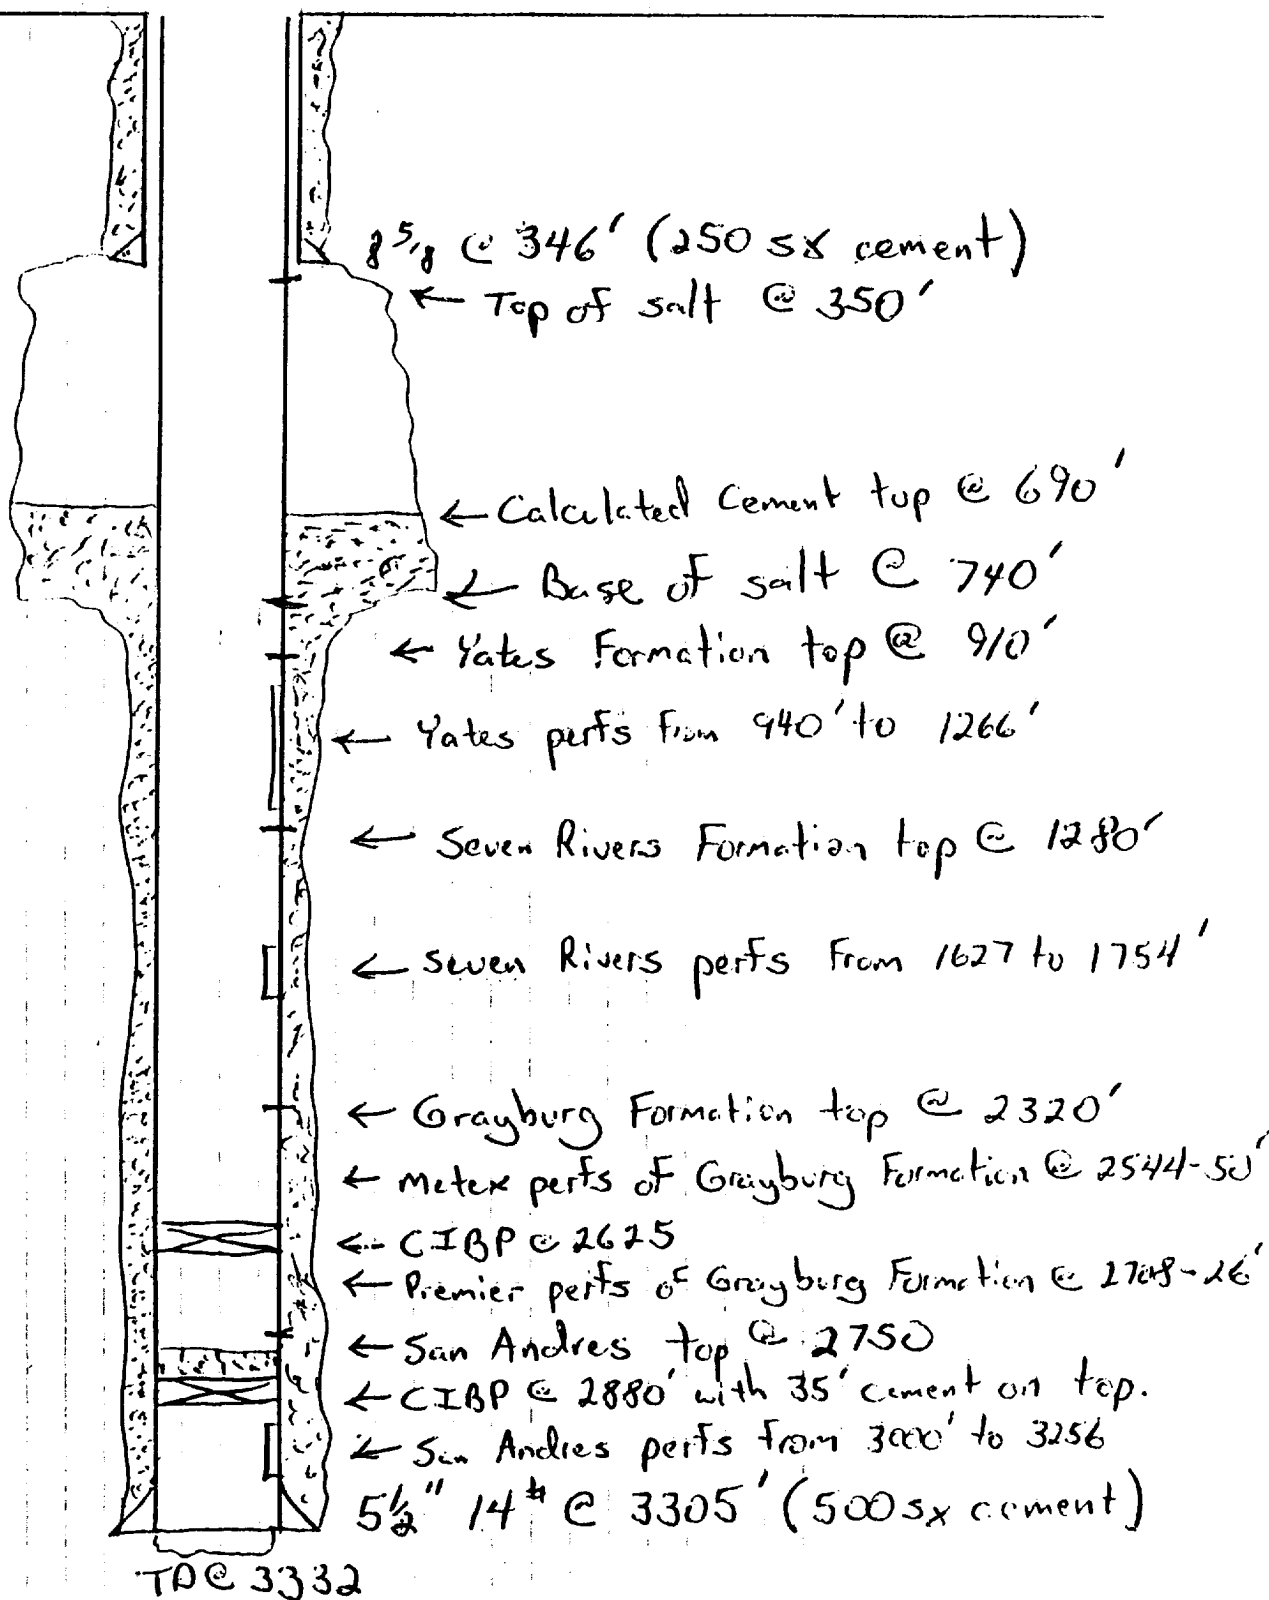 8 5/8 @ 346' (250 sx cement)
← Top of salt @ 350'
← Calculated Cement top @ 690'
← Base of salt @ 740'
← Yates Formation top @ 910'
← Yates perfs from 940' to 1266'
← Seven Rivers Formation top @ 1280'
← Seven Rivers perfs From 1627 to 1754'
← Grayburg Formation top @ 2320'
← Metex perfs of Grayburg Formation @ 2544-50'
← CIBP @ 2625
← Premier perfs of Grayburg Formation @ 2708-26'
← San Andres top @ 2750
← CIBP @ 2880' with 35' cement on top.
← San Andres perfs from 3000' to 3256
5½" 14# @ 3305' (500 sx cement)
TD @ 3332